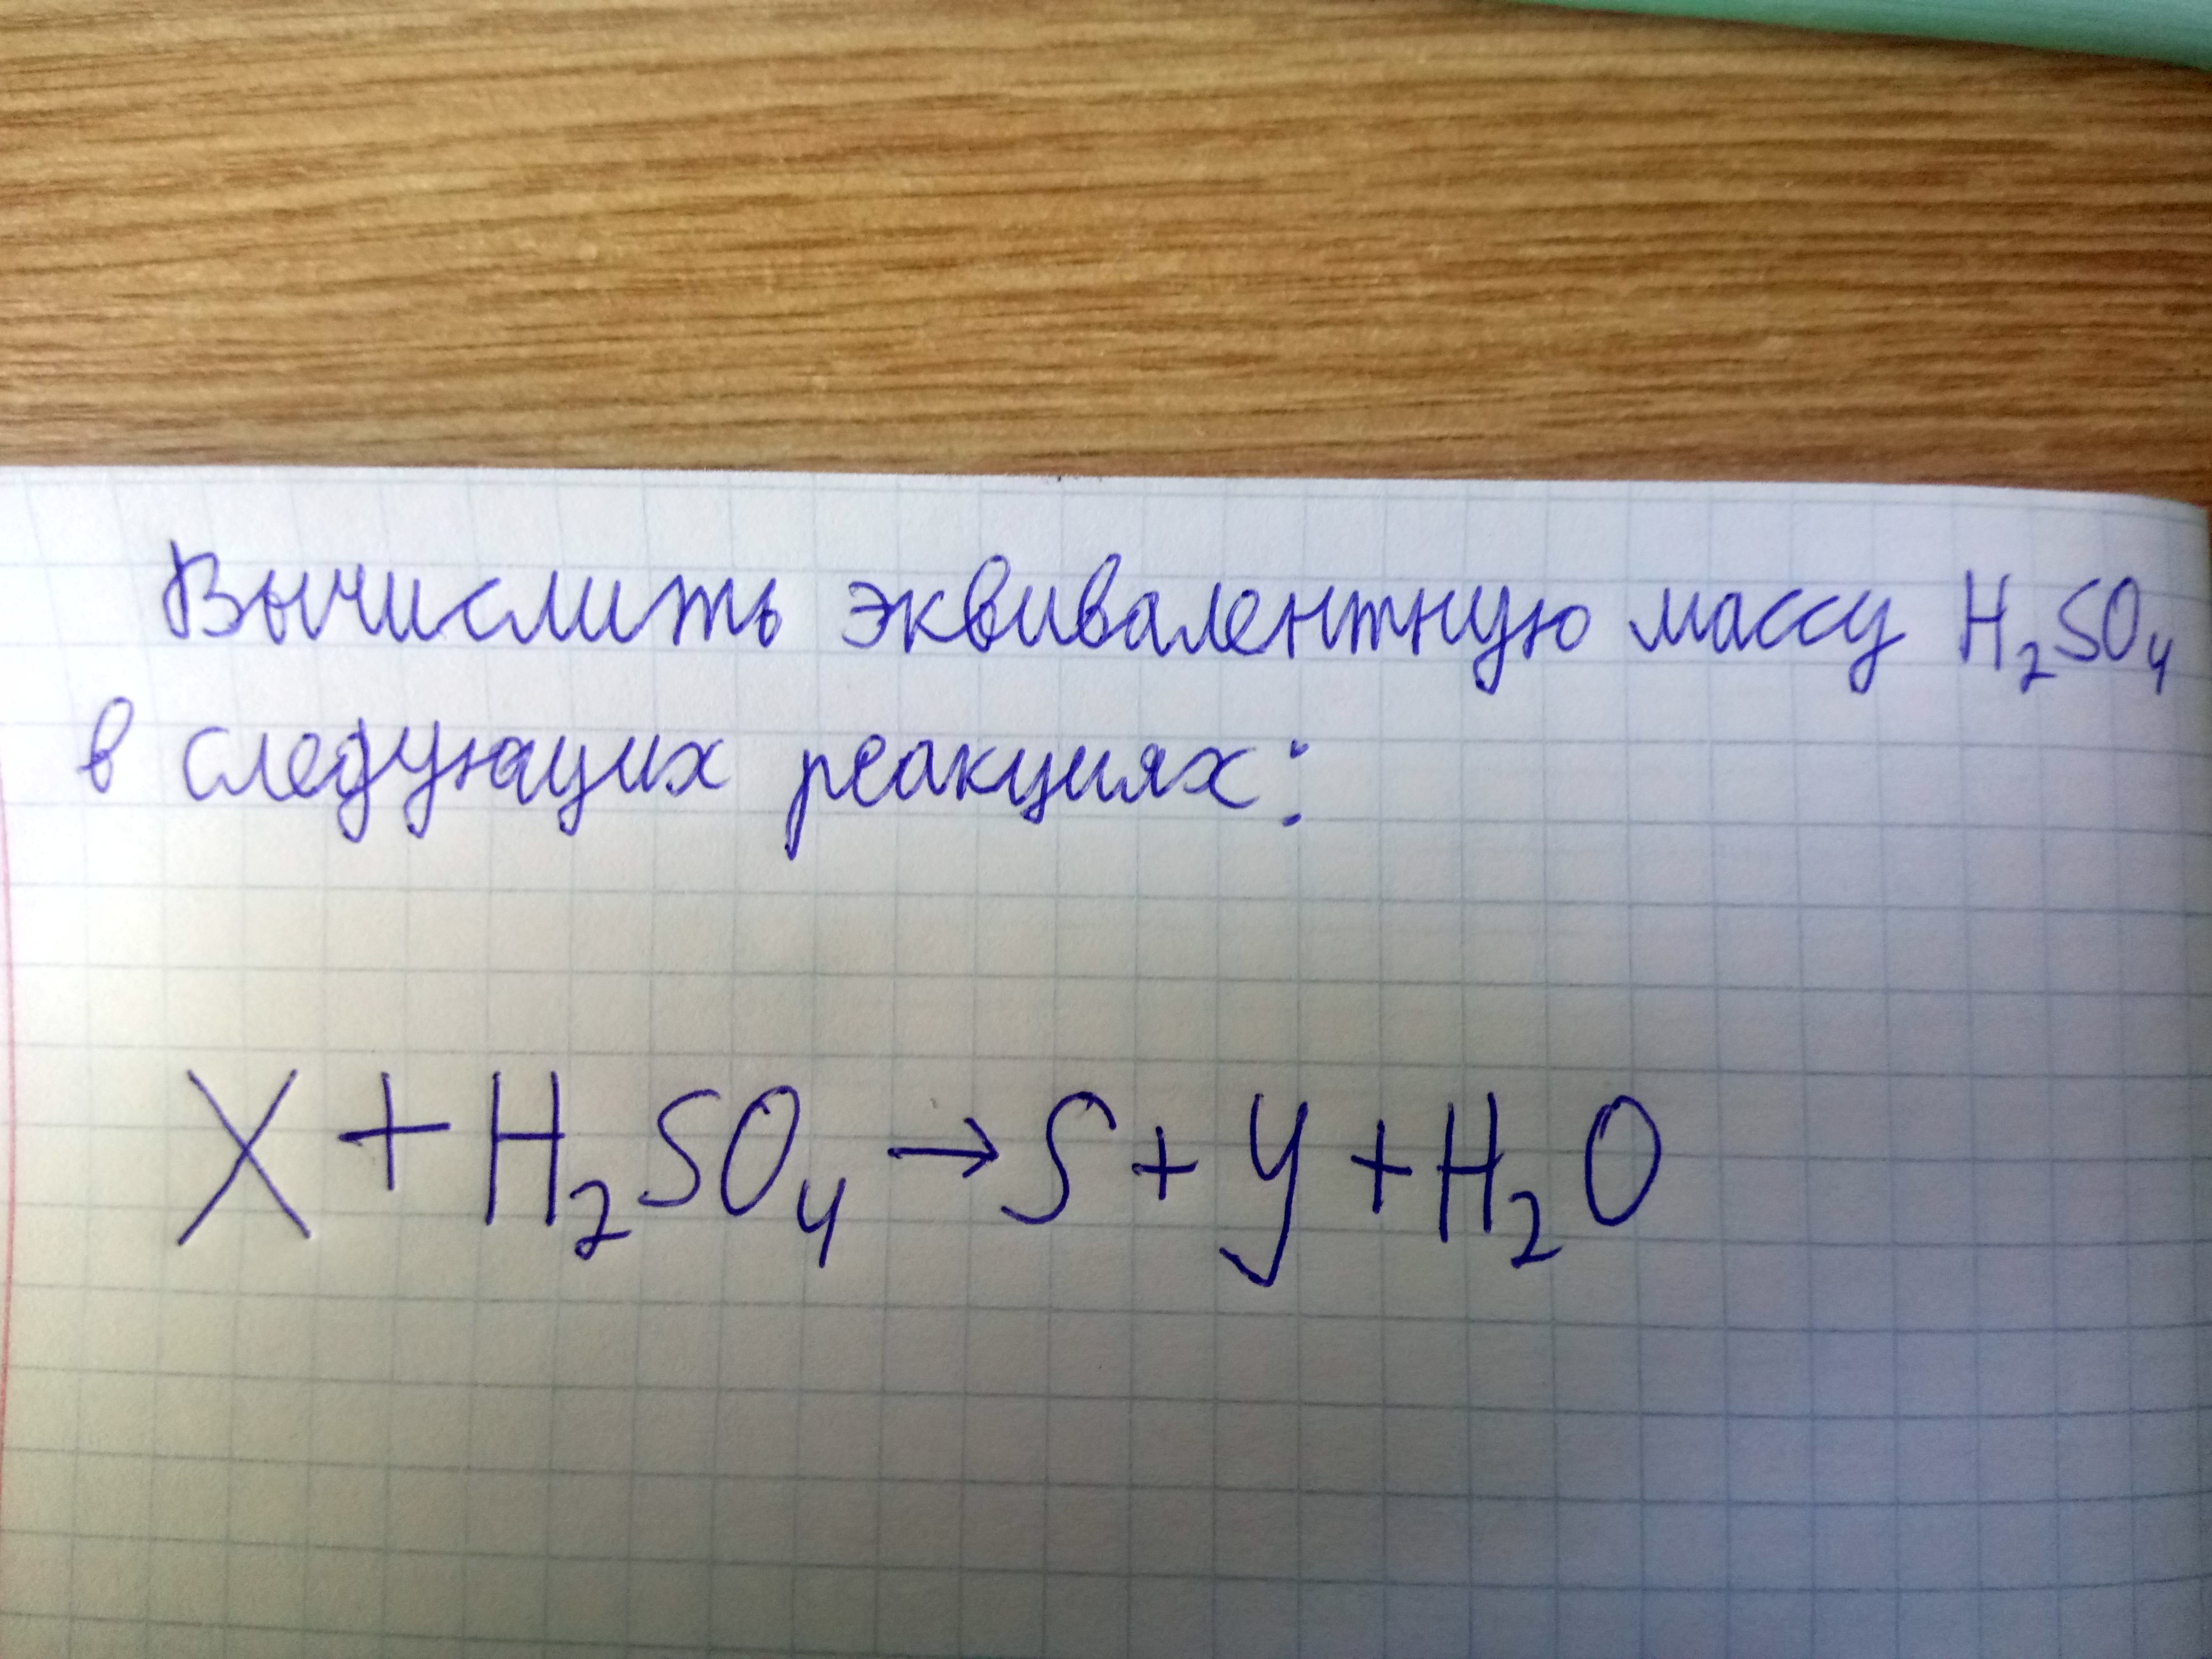 Вычислить эквивалентную массу H₂SO₄
в следующих реакциях:
X + H₂SO₄ → S + У + H₂O